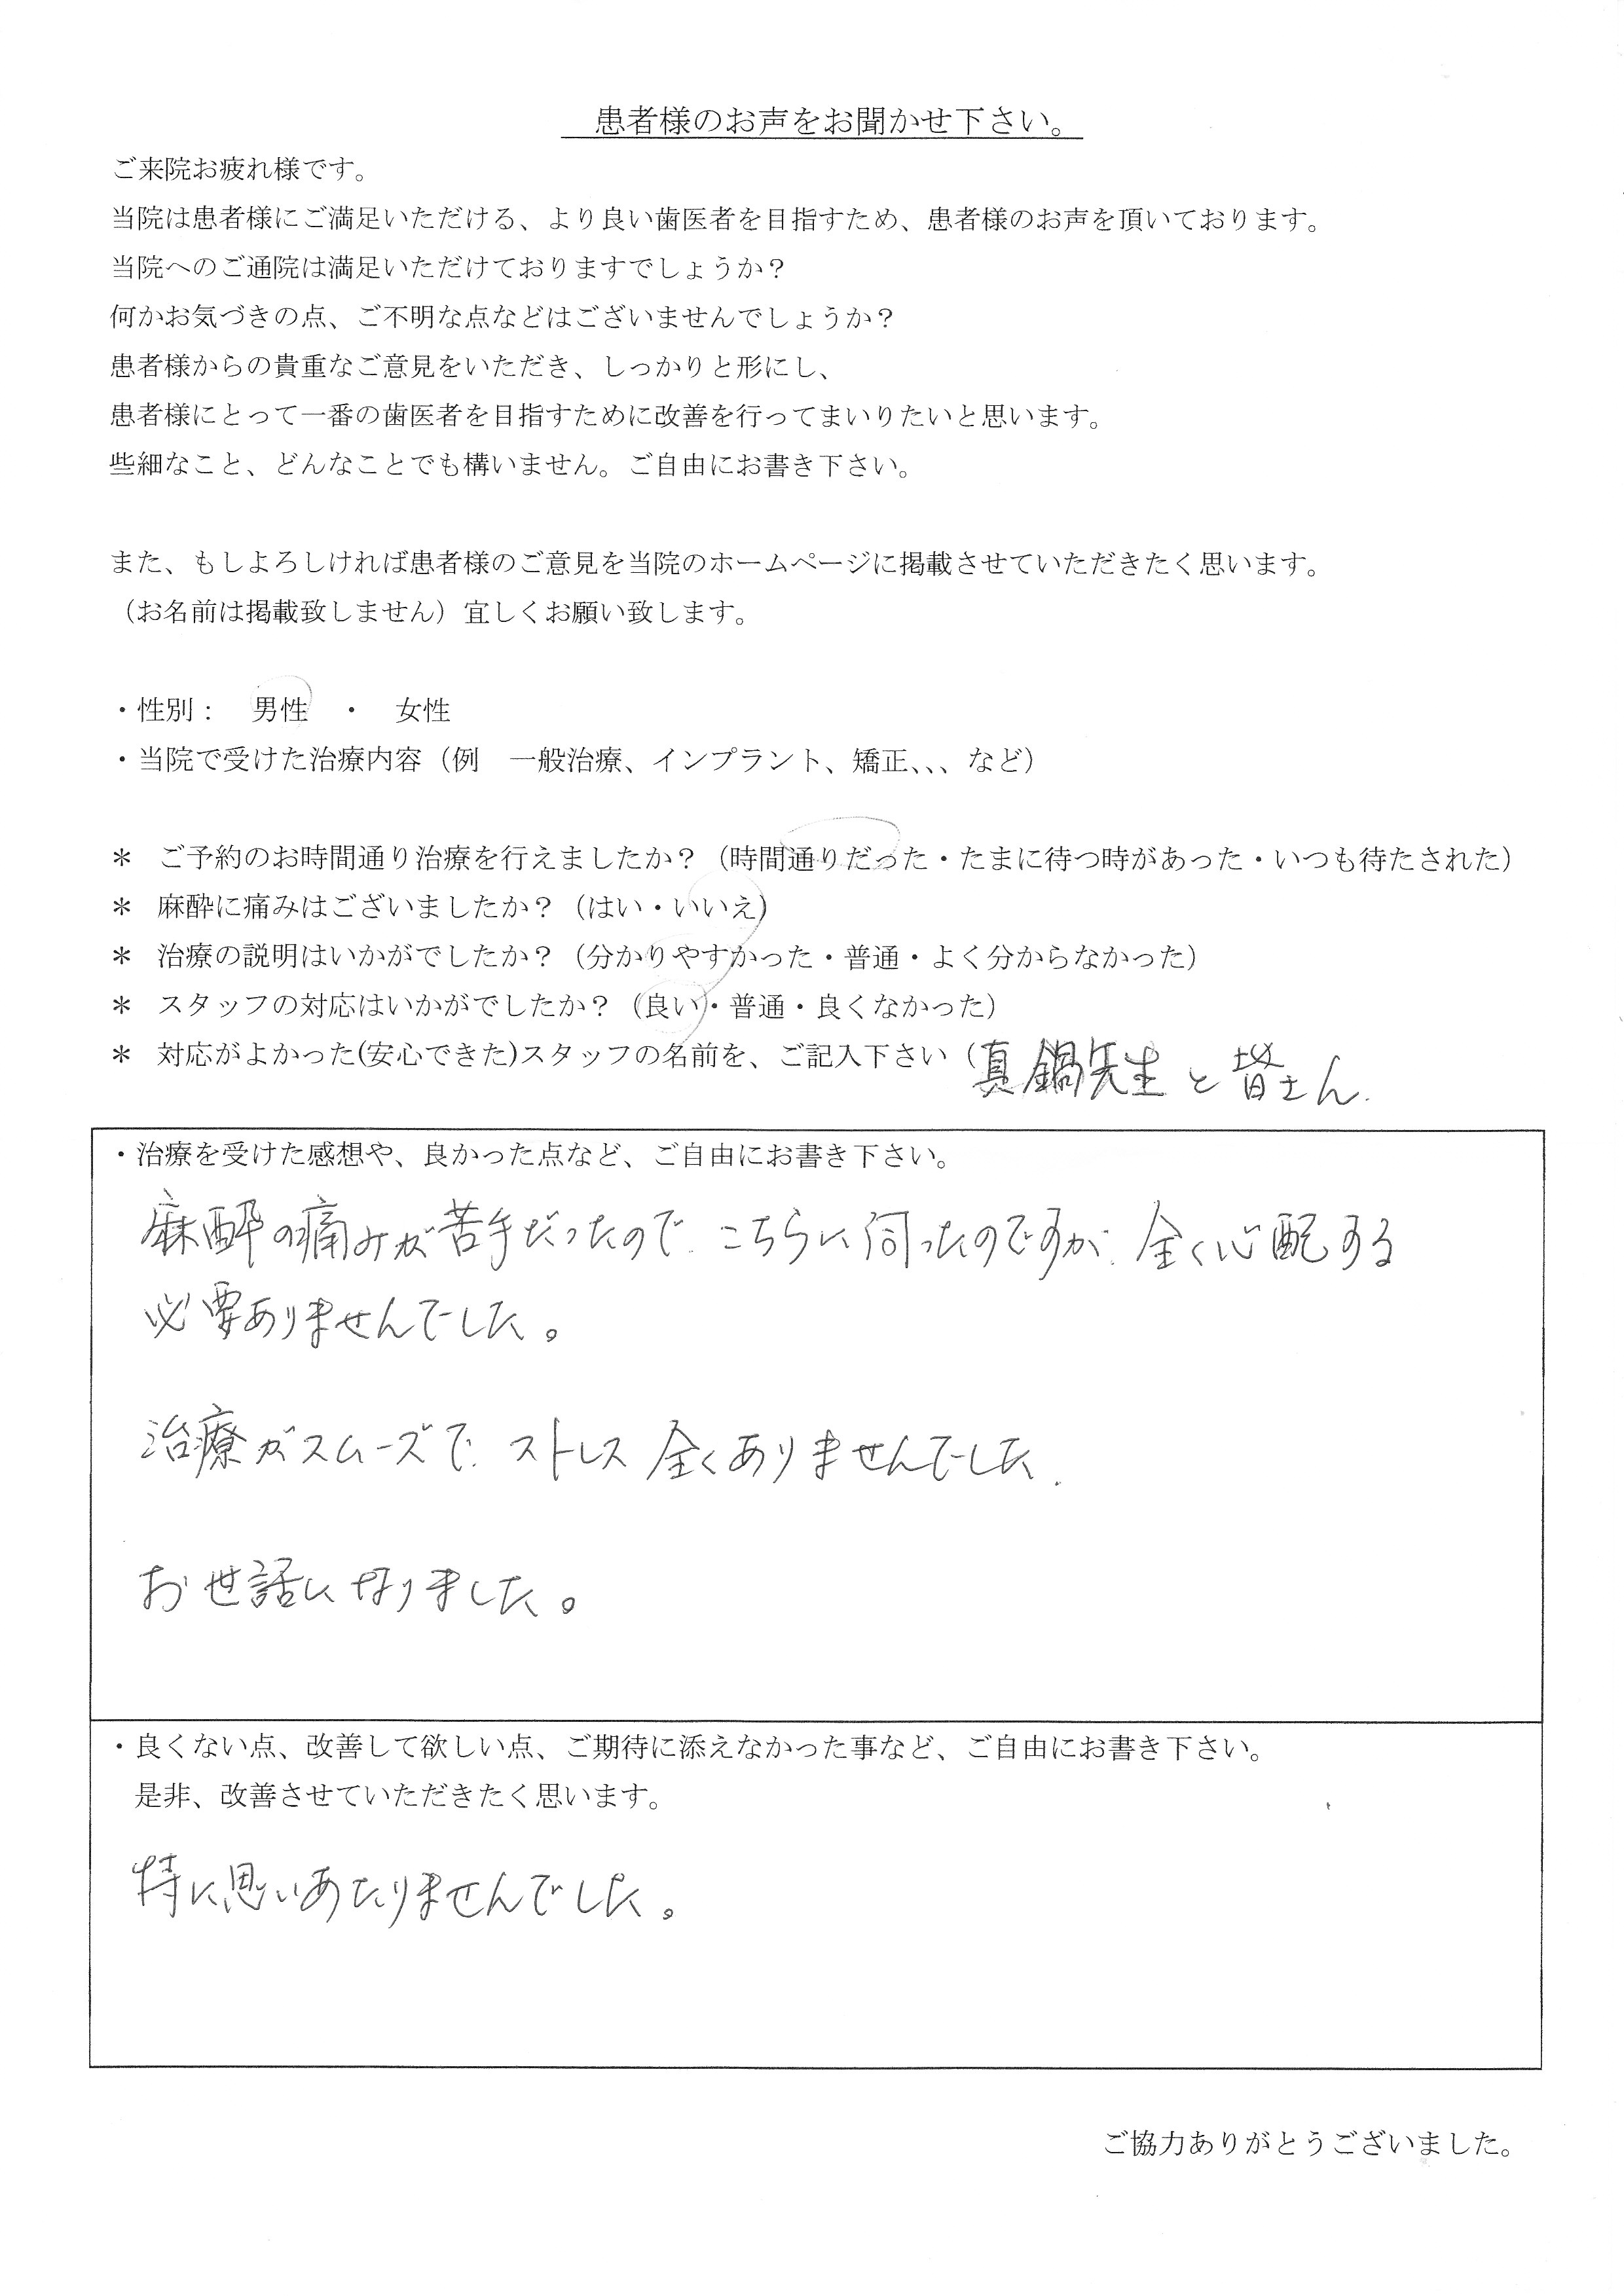 患者様のお声をお聞かせ下さい。
ご来院お疲れ様です。
当院は患者様にご満足いただける、より良い歯医者を目指すため、患者様のお声を頂いております。
当院へのご通院は満足いただけておりますでしょうか？
何かお気づきの点、ご不明な点などはございませんでしょうか？
患者様からの貴重なご意見をいただき、しっかりと形にし、
患者様にとって一番の歯医者を目指すために改善を行ってまいりたいと思います。
些細なこと、どんなことでも構いません。ご自由にお書き下さい。
また、もしよろしければ患者様のご意見を当院のホームページに掲載させていただきたく思います。
（お名前は掲載致しません）宜しくお願い致します。
・性別：　男性　・　女性
・当院で受けた治療内容（例　一般治療、インプラント、矯正、、、など）
＊ ご予約のお時間通り治療を行えましたか？（時間通りだった・たまに待つ時があった・いつも待たされた）
＊ 麻酔に痛みはございましたか？（はい・いいえ）
＊ 治療の説明はいかがでしたか？（分かりやすかった・普通・よく分からなかった）
＊ スタッフの対応はいかがでしたか？（良い・普通・良くなかった）
＊ 対応がよかった(安心できた)スタッフの名前を、ご記入下さい（真鍋先生と皆さん.
・治療を受けた感想や、良かった点など、ご自由にお書き下さい。
麻酔の痛みが苦手だったので、こちらに伺ったのですが、全く心配する
必要ありませんでした。
治療がスムーズで、ストレス全くありませんでした.
お世話になりました。
・良くない点、改善して欲しい点、ご期待に添えなかった事など、ご自由にお書き下さい。
是非、改善させていただきたく思います。
特に思いあたりませんでした。
ご協力ありがとうございました。